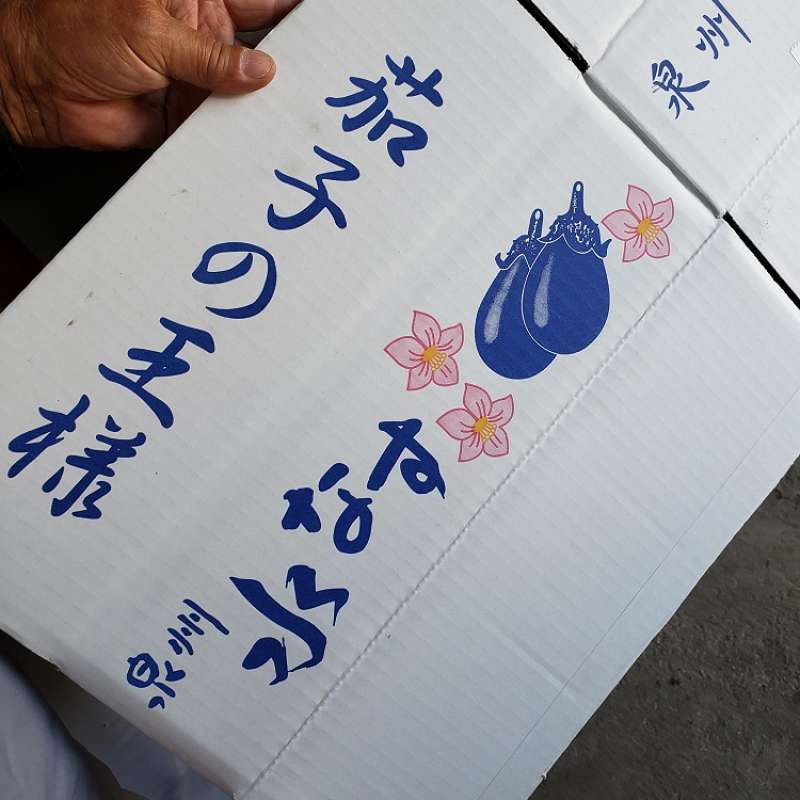 茄子の王様
泉州
水なす
泉州